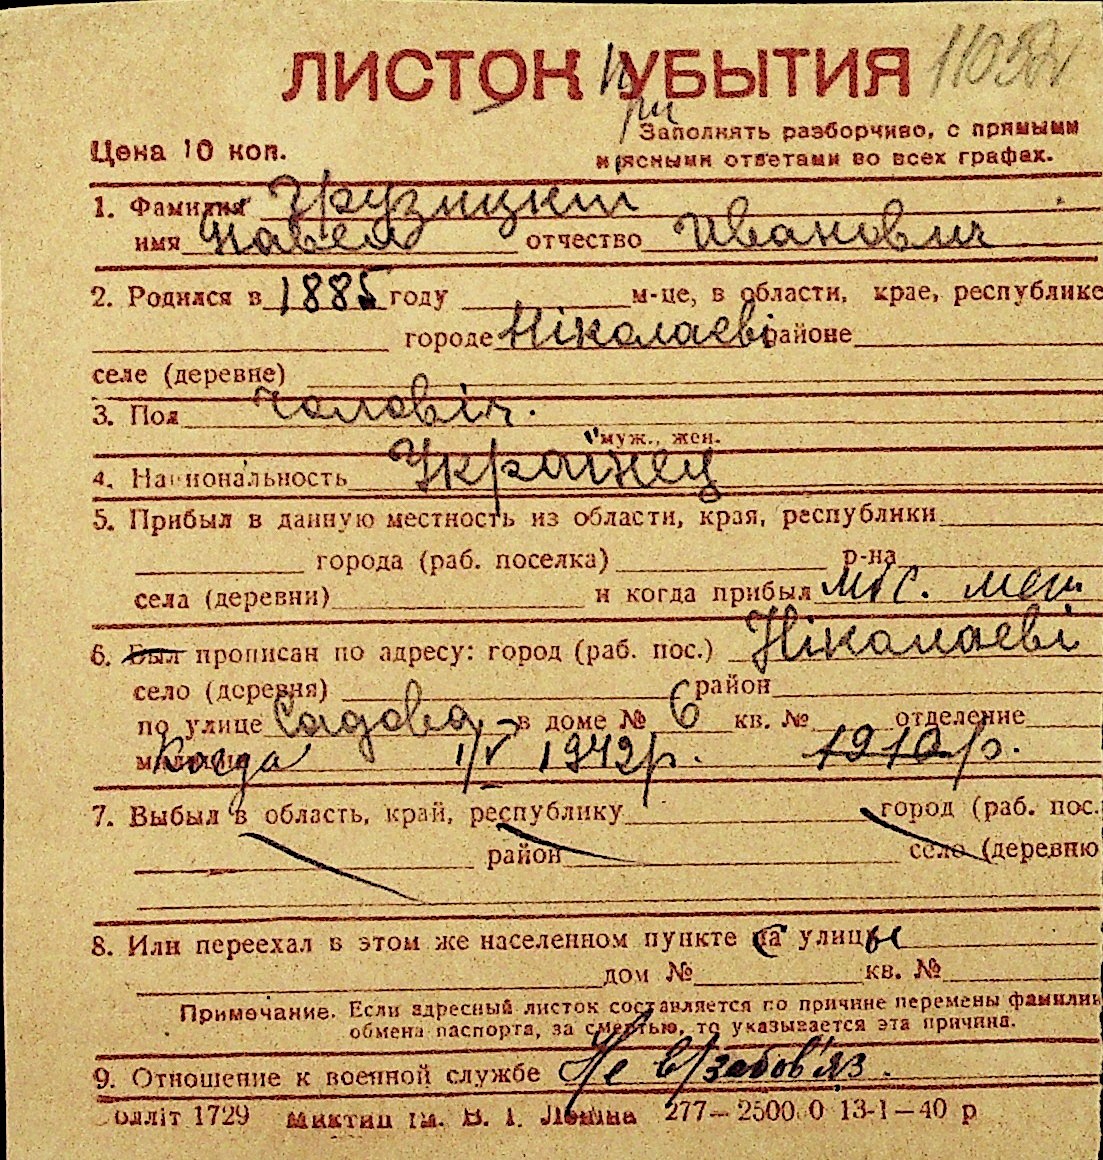 ЛИСТОК УБЫТИЯ
при
Цена 10 коп.
Заполнять разборчиво, с прямыми
и ясными ответами во всех графах.
1. Фамилия Грузицкий
имя Павел отчество Иванович
2. Родился в 1885 году м-це, в области, крае, республике
городе Ніколаеві районе
селе (деревне)
3. Пол чоловіч.
муж., жен.
4. Национальность Українец
5. Прибыл в данную местность из области, края, республики
города (раб. поселка) р-на
села (деревни) и когда прибыл міс. меш
6. Был прописан по адресу: город (раб. пос.) Ніколаеві
село (деревня) район
по улице Садова в доме № 6 кв. № отделение
милиции Когда 1/V 1942р. 1910р.
7. Выбыл в область, край, республику город (раб. пос.
район село (деревню
8. Или переехал в этом же населенном пункте с улицы
дом № кв. №
Примечание. Если адресный листок составляется по причине перемены фамилии
обмена паспорта, за смертью, то указывается эта причина.
9. Отношение к военной службе Не взобов'яз.
1729 им. В. І. Леніна 277—2500 0 13-1—40 р